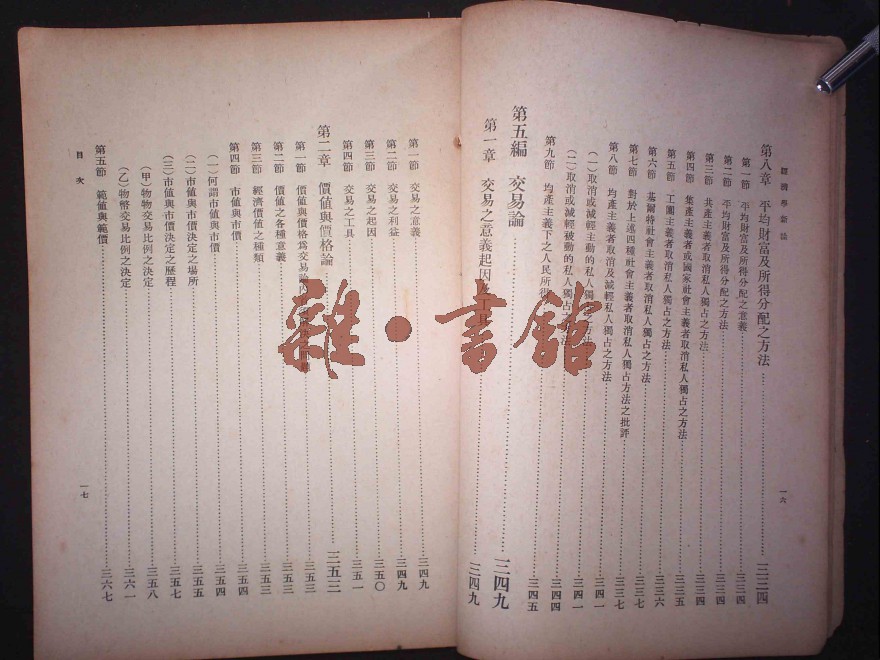 經濟學新論
第八章 平均財富及所得分配之方法……三三四
第一節 平均財富及所得分配之意義……三三四
第二節 平均財富及所得分配之方法……三三四
第三節 共產主義者取消私人獨占之方法……三三四
第四節 集產主義者或國家社會主義者取消私人獨占之方法……三三五
第五節 工團主義者取消私人獨占之方法……三三六
第六節 基爾特社會主義者取消私人獨占之方法……三三七
第七節 對於上述四種社會主義者取消私人獨占方法之批評……三三七
第八節 均產主義者取消及減輕私人獨占之方法……三四一
(一)取消或減輕主動的私人獨占之方法……三四一
(二)取消或減輕被動的私人獨占之方法……三四四
第九節 均產主義下之人民所得……三四五
第五編 交易論……三四九
第一章 交易之意義起因及工具……三四九
一六
第一節 交易之意義……三四九
第二節 交易之利益……三四九
第三節 交易之起因……三五〇
第四節 交易之工具……三五一
第二章 價值與價格論……三五三
第一節 價值與價格爲交易論內……三五三
第二節 價值之各種意義……三五三
第三節 經濟價值之種類……三五三
第四節 市值與市價……三五四
(一)何謂市值與市價……三五四
(二)市值與市價決定之場所……三五五
(三)市值與市價決定之歷程……三五七
(甲)物物交易比例之決定……三五八
(乙)物幣交易比例之決定……三六一
第五節 範值與範價……三六七
目次
一七
雜·書館